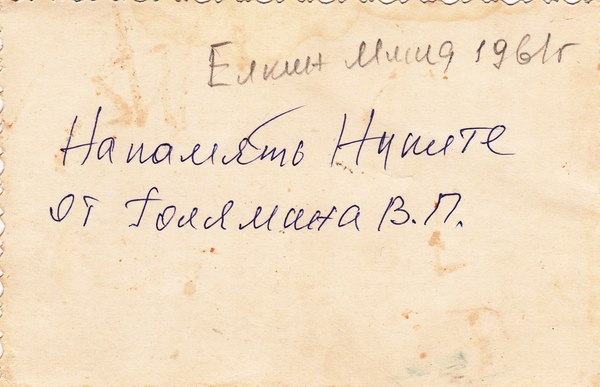 Елкин 1961г
На память Никите
от Голямина В.П.